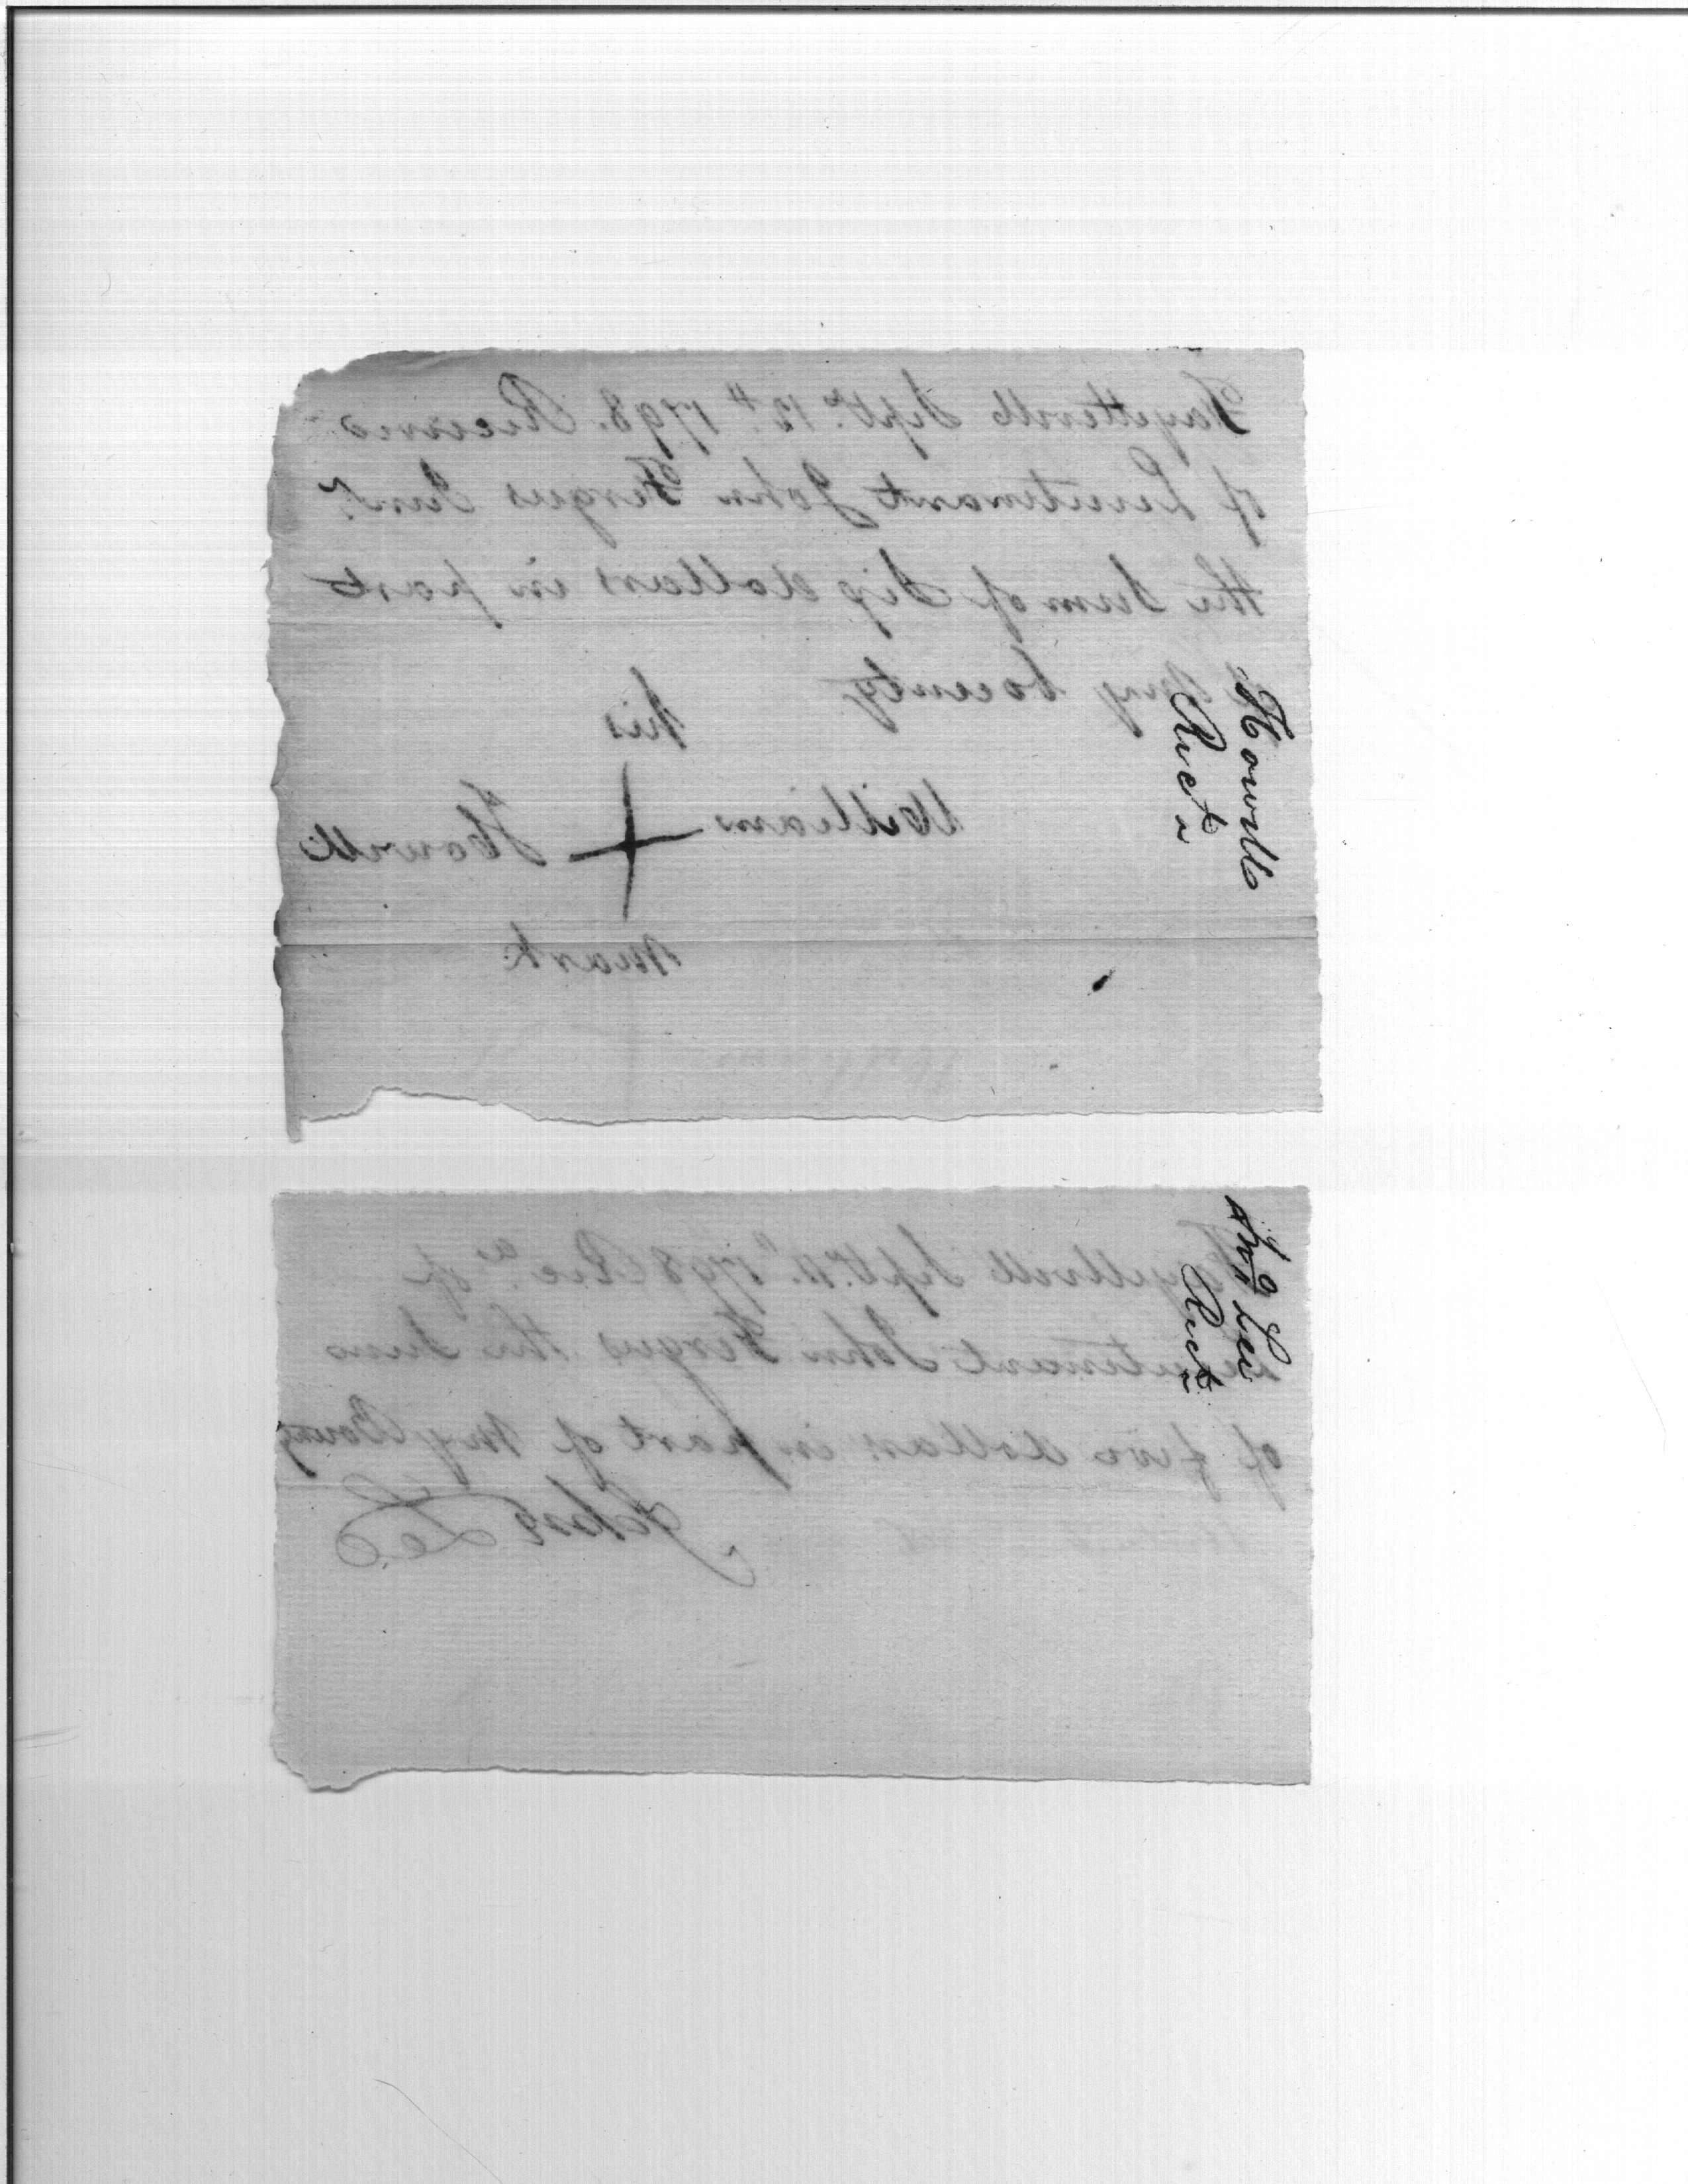 Fayetteville Septr. 12th 1798. Received
of Lieutenant John Fergus Junr.
the Sum of Six dollars in part
my bounty
his
William Howell
mark
Howell
Rect
Fayetteville Septr. 11th 1798 Recd. of
Lieutenant John Fergus the Sum
of five dollars in part of my Bounty
Lee
Lee
Rect